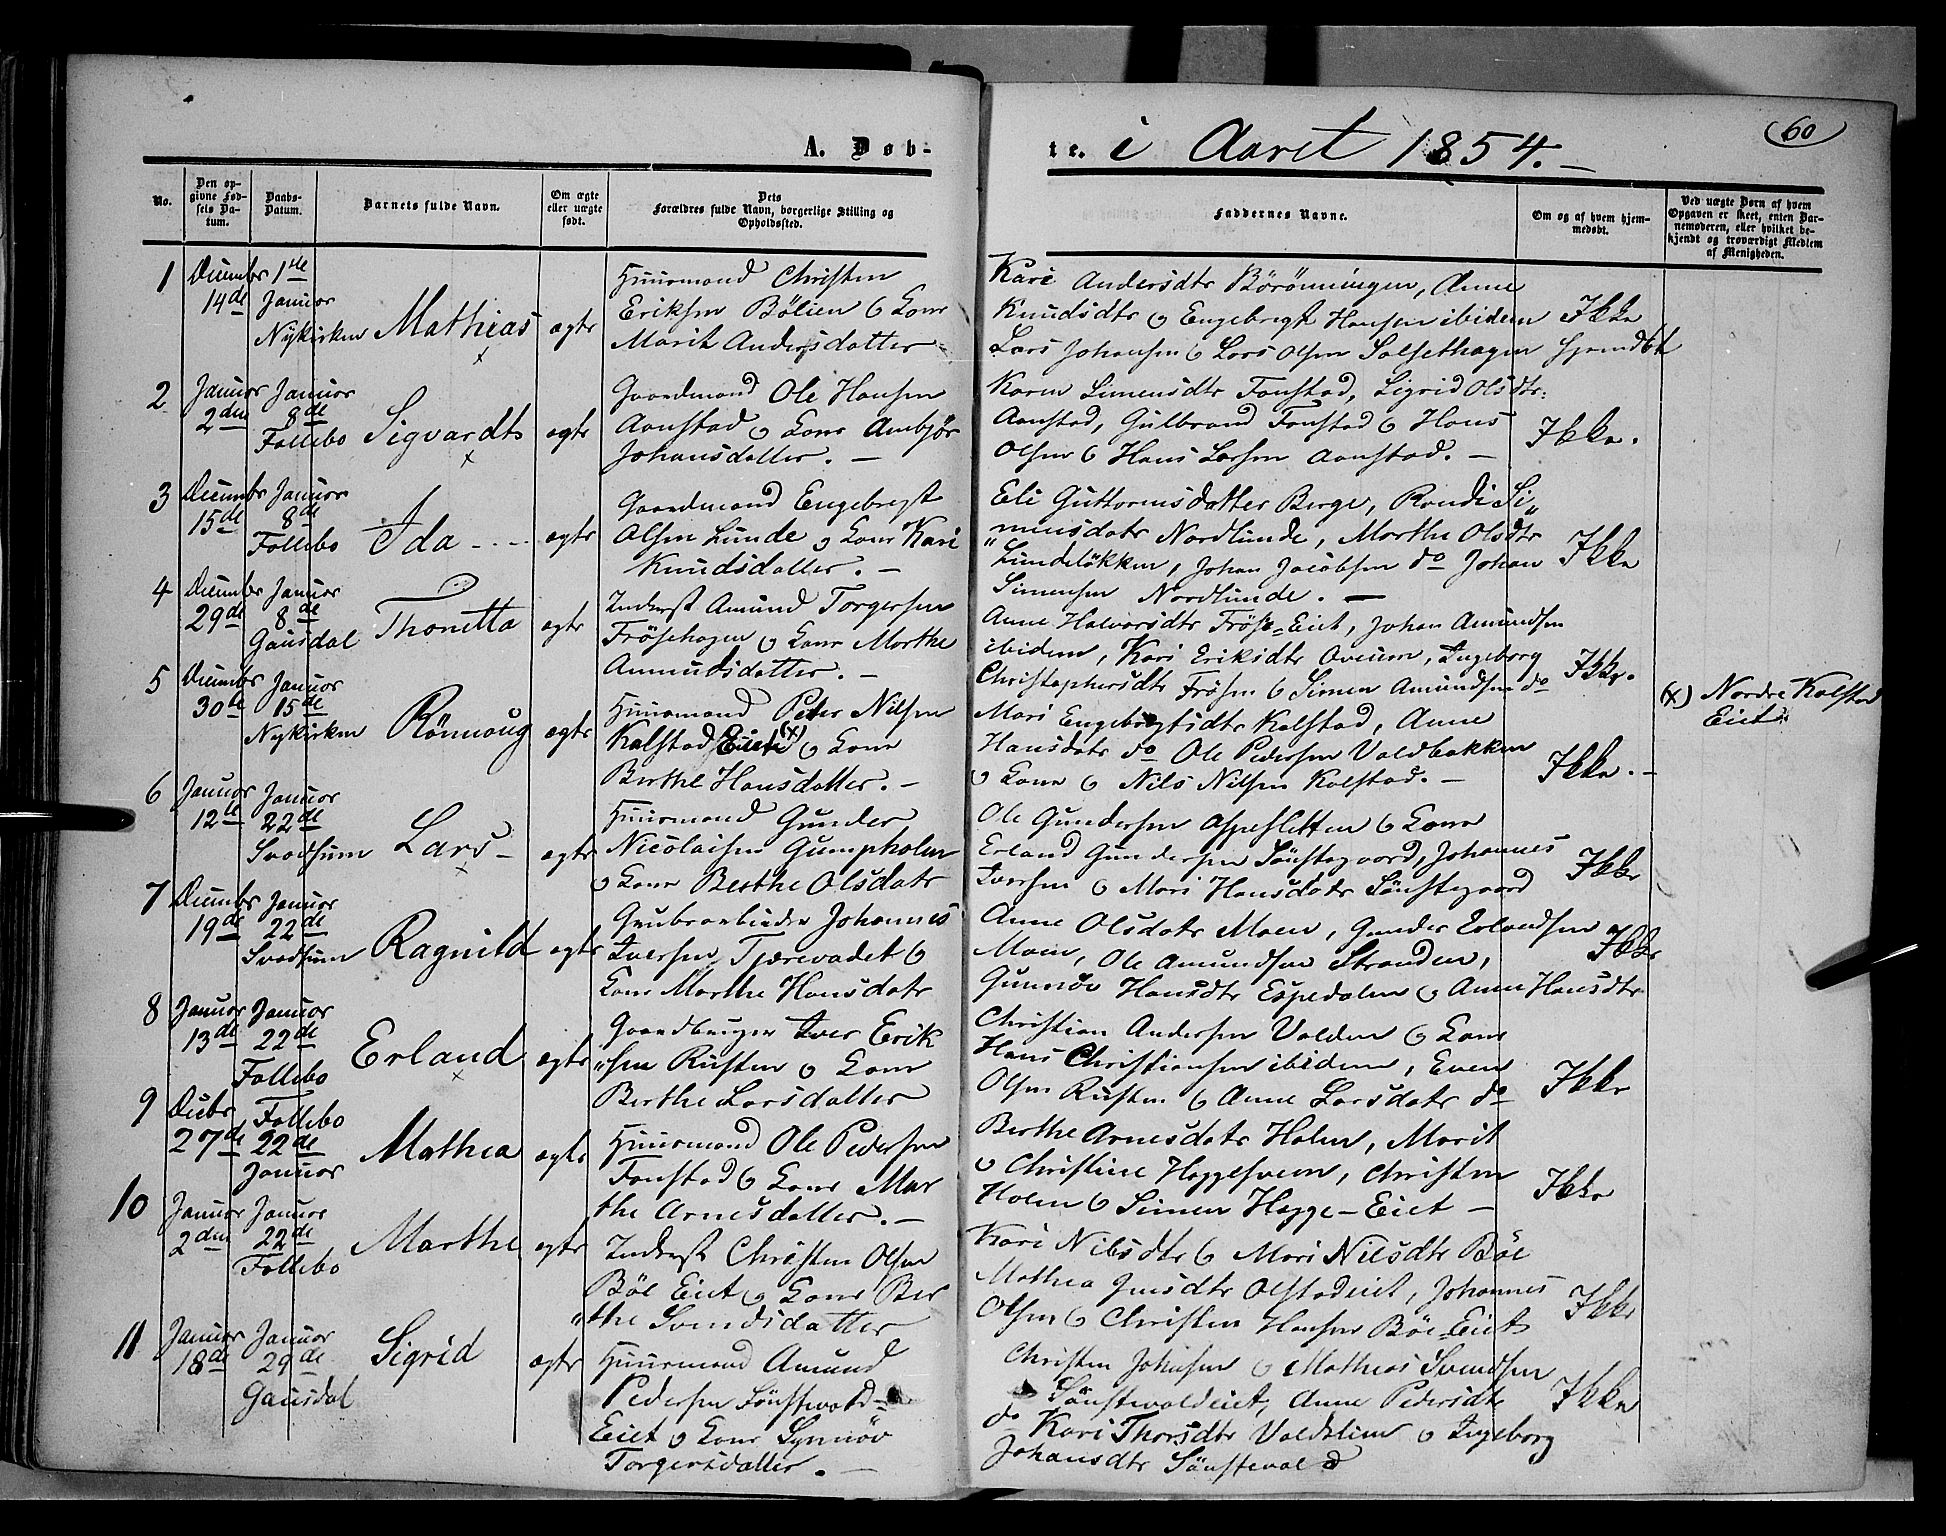 A. Døb-
te. i Aaret 1854.
60
No.
Den op-
givne Fød-
sels Da-
tum.
Daabs-
Datum.
Barnets fulde Navn.
Om ægte
eller uægte
født.
Dets
Forældres fulde Navn, borgerlige Stilling og
Opholdssted.
Faddernes Navne.
Om og af hvem hjem-
medøbt.
Ved uægte Børn af hvem
Opgaven er skeet, enten Bar-
nemoderen, eller hvilket be-
kjendt og troværdigt Medlem
af Menigheden.
1
December
14de
1ste
Januar
Nykirken
Mathias
ægte
Huusmand Christen
Eriksen Bölien & Kone
Marit Andersdatter
Kari Andersdtr Börönningen, Anne
Knudsdtr & Engebregt Hansen ibidem
Lars Johansen & Lars Olsen Solsethagen
Ikke
hjemdbt
2
Januar
2den
Januar
8de
Follebo
Sigvardt
ægte
Gaardmand Ole Hansen
Aanstad & Kone Ambjör
Johansdatter. —
Karen Simensdtr Fonstad, Sigrid Olsdtr.
Aanstad, Gulbrand Fonstad & Hans
Olsen & Hans Larsen Aanstad. —
Ikke.
3
December
15de
Januar
8de
Follebo
Ida
ægte
Gaardmand Engebregt
Olsen Lunde & Kone Kari
Knudsdatter. —
Eli Guttormsdatter Berge, Rondi Si„
„mensdatr Nordlunde, Marthe Olsdtr
Lundelökken, Johan Jacobsen do Johan
Simensen Nordlunde. —
Ikke
4
December
29de
Januar
8de
Gausdal
Thonetta
ægte
Inderst Amund Torgersen
Frösehagen & Kone Marthe
Anmudsdatter. —
Anne Halvorsdtr Fröse-Eiet, Johan Amundsen
ibidem, Kari Eriksdtr Oveum, Ingeborg
Christophersdtr Frösen & Simen Amundsen do
Ikke.
5
December
30te
Januar
15de
Nykirken
Rönnoug
ægte
Huusmand Peter Nilsen
Kalstad Eiet (x) & Kone
Berthe Hansdatter. —
Mari Engebregtsdtr Kalstad, Anne
Hansdatr do Ole Pedersen Valdbakken
& Kone & Nils Nilsen Kolstad. —
Ikke. —
(x) Nordre Kalstad
Eiet
6
Januar
12te
Januar
22de
Svadsum
Lars
ægte
Huusmand Gunder
Nicolaisen Gumpholen
& Kone Berthe Olsdatr
Ole Gundersen Aspesletten & Kone
Erland Gundersen Sönstegaard, Johannes
Iversen & Mari Hansdatr Sönstegaard
Ikke
7
December
19de
Januar
22de
Svadsum
Ragnild
ægte
Grubearbeider Johannes
Iversen Tjærevadet &
Kone Marthe Hansdatr
Anne Olsdatr Moen, Gunder Erlandsen
Moen, Ole Amundsen Stranden,
Gunnöv Hansdtr Espedalen & Anne Hansdtr
Ikke
8
Januar
13de
Januar
22de
Follebo
Erland
ægte
Gaardbruger Iver Erik
„sen Rusten & Kone
Berthe Larsdatter
Christian Andersen Valden & Kone
Hans Christiansen ibidem, Even
Olsen Rusten & Anne Larsdatr do
Ikke
9
Decbr
27de
Follebo
22de
Januar
Mathea
ægte
Huusmand Ole Pedersen
Fonstad & Kone Mar
the Arnesdatter. —
Berthe Arnesdatr Holen, Marit
& Christine Heggelsveen, Christen
Holen & Simen Hegge-Eiet —
Ikke
10
Januar
2den
Januar
22de
Follebo
Marthe
ægte
Inderst Christen Olsen
Böe Eiet & Kone Ber
„the Svendsdatter
Kari Nilsdtr & Mari Nilsdtr Böe
Mathea Jensdtr Olstadeiet, Johannes
Olsen & Christen Hansen Böe-Eiet
Ikke
11
Januar
18de
Januar
29de
Gausdal
Sigrid
ægte
Huusmand Amund
Pedersen Sönstevold-
Eiet & Kone Synnöv
Torgersdatter. —
Christen Johnsen & Mathias Svendsen
Sönstevoldeiet, Anne Pedersdtr
do Kari Thorsdtr Voldslien & Ingeborg
Johansdtr Sönstevold
Ikke